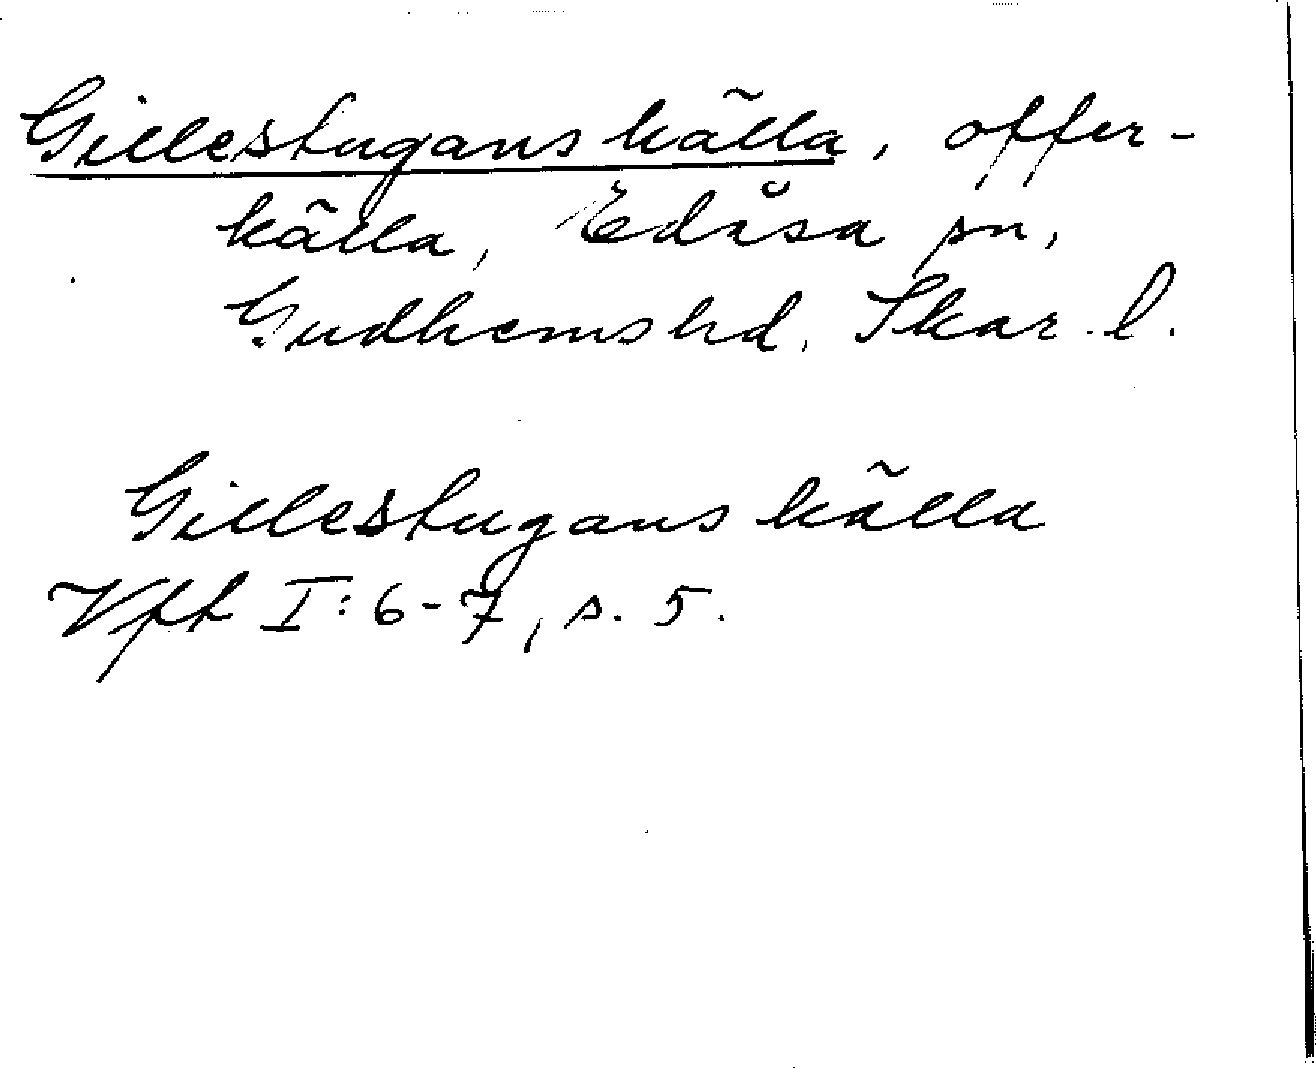 Gillestugans källa, offer-
källa, Edåsa sn,
Gudhems hd, Skar. l.
Gillestugans källa
Vft I: 6-7, s. 5.